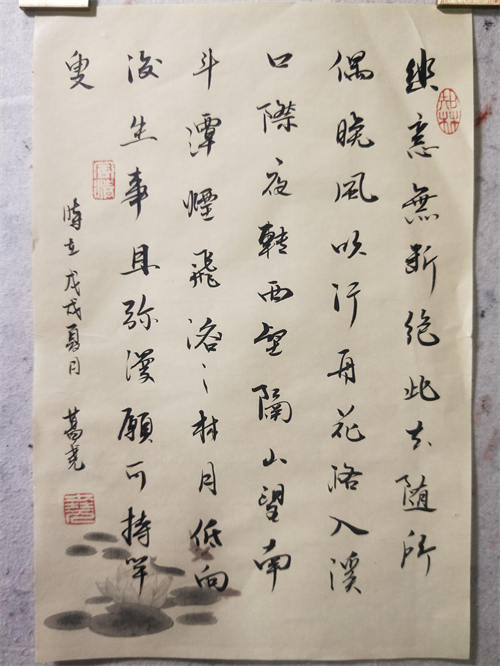 幽意無斷絕此去随所
偶晚风吹行舟花路入溪
口際夜轉西壑隔山望南
斗潭煙飛溶々林月低向
後生事且弥漫願为持竿
叟
時在戊戌夏月